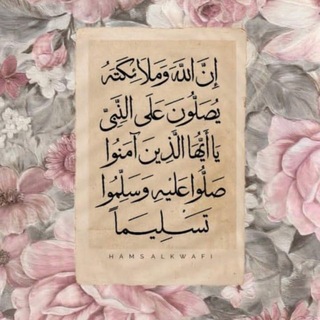 إِنَّ اللَّهَ وَمَلَائِكَتَهُ
يُصَلُّونَ عَلَى النَّبِيِّ
يَا أَيُّهَا الَّذِينَ آمَنُوا
صَلُّوا عَلَيْهِ وَسَلِّمُوا
تَسْلِيماً
HAMSALKWAFI